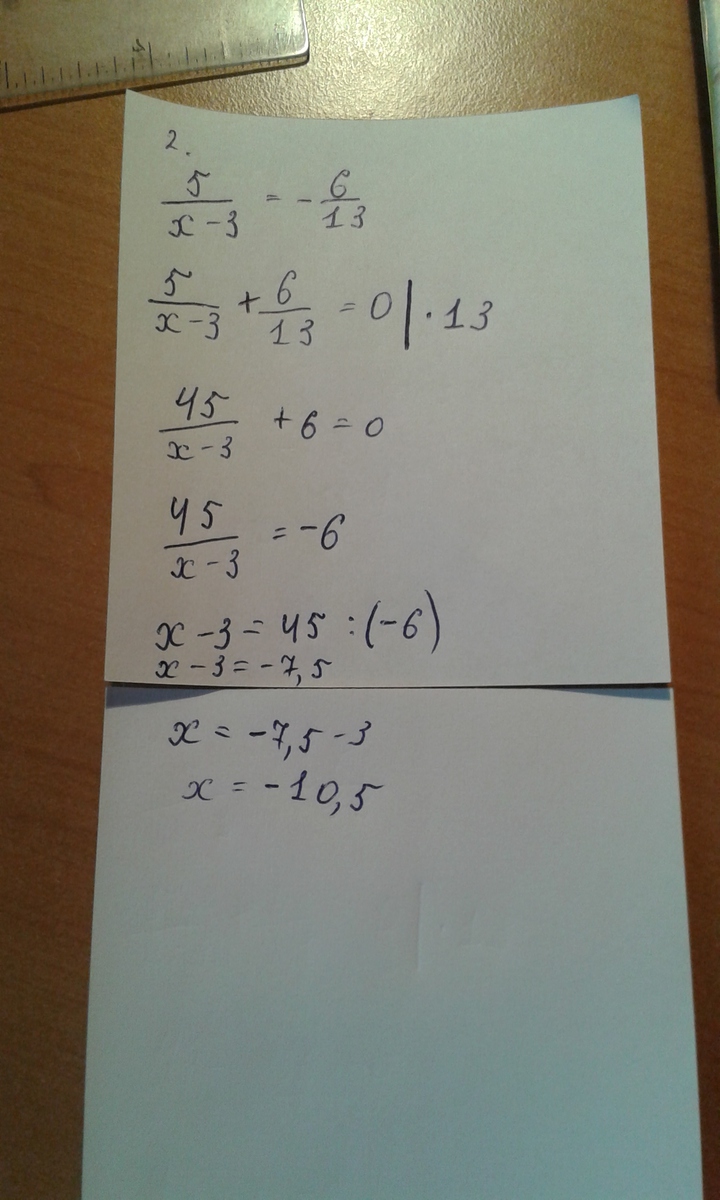 2.
5/(x-3) = -6/13
5/(x-3) + 6/13 = 0 | · 13
45/(x-3) + 6 = 0
45/(x-3) = -6
x - 3 = 45 : (-6)
x - 3 = -7,5
x = -7,5 - 3
x = -10,5